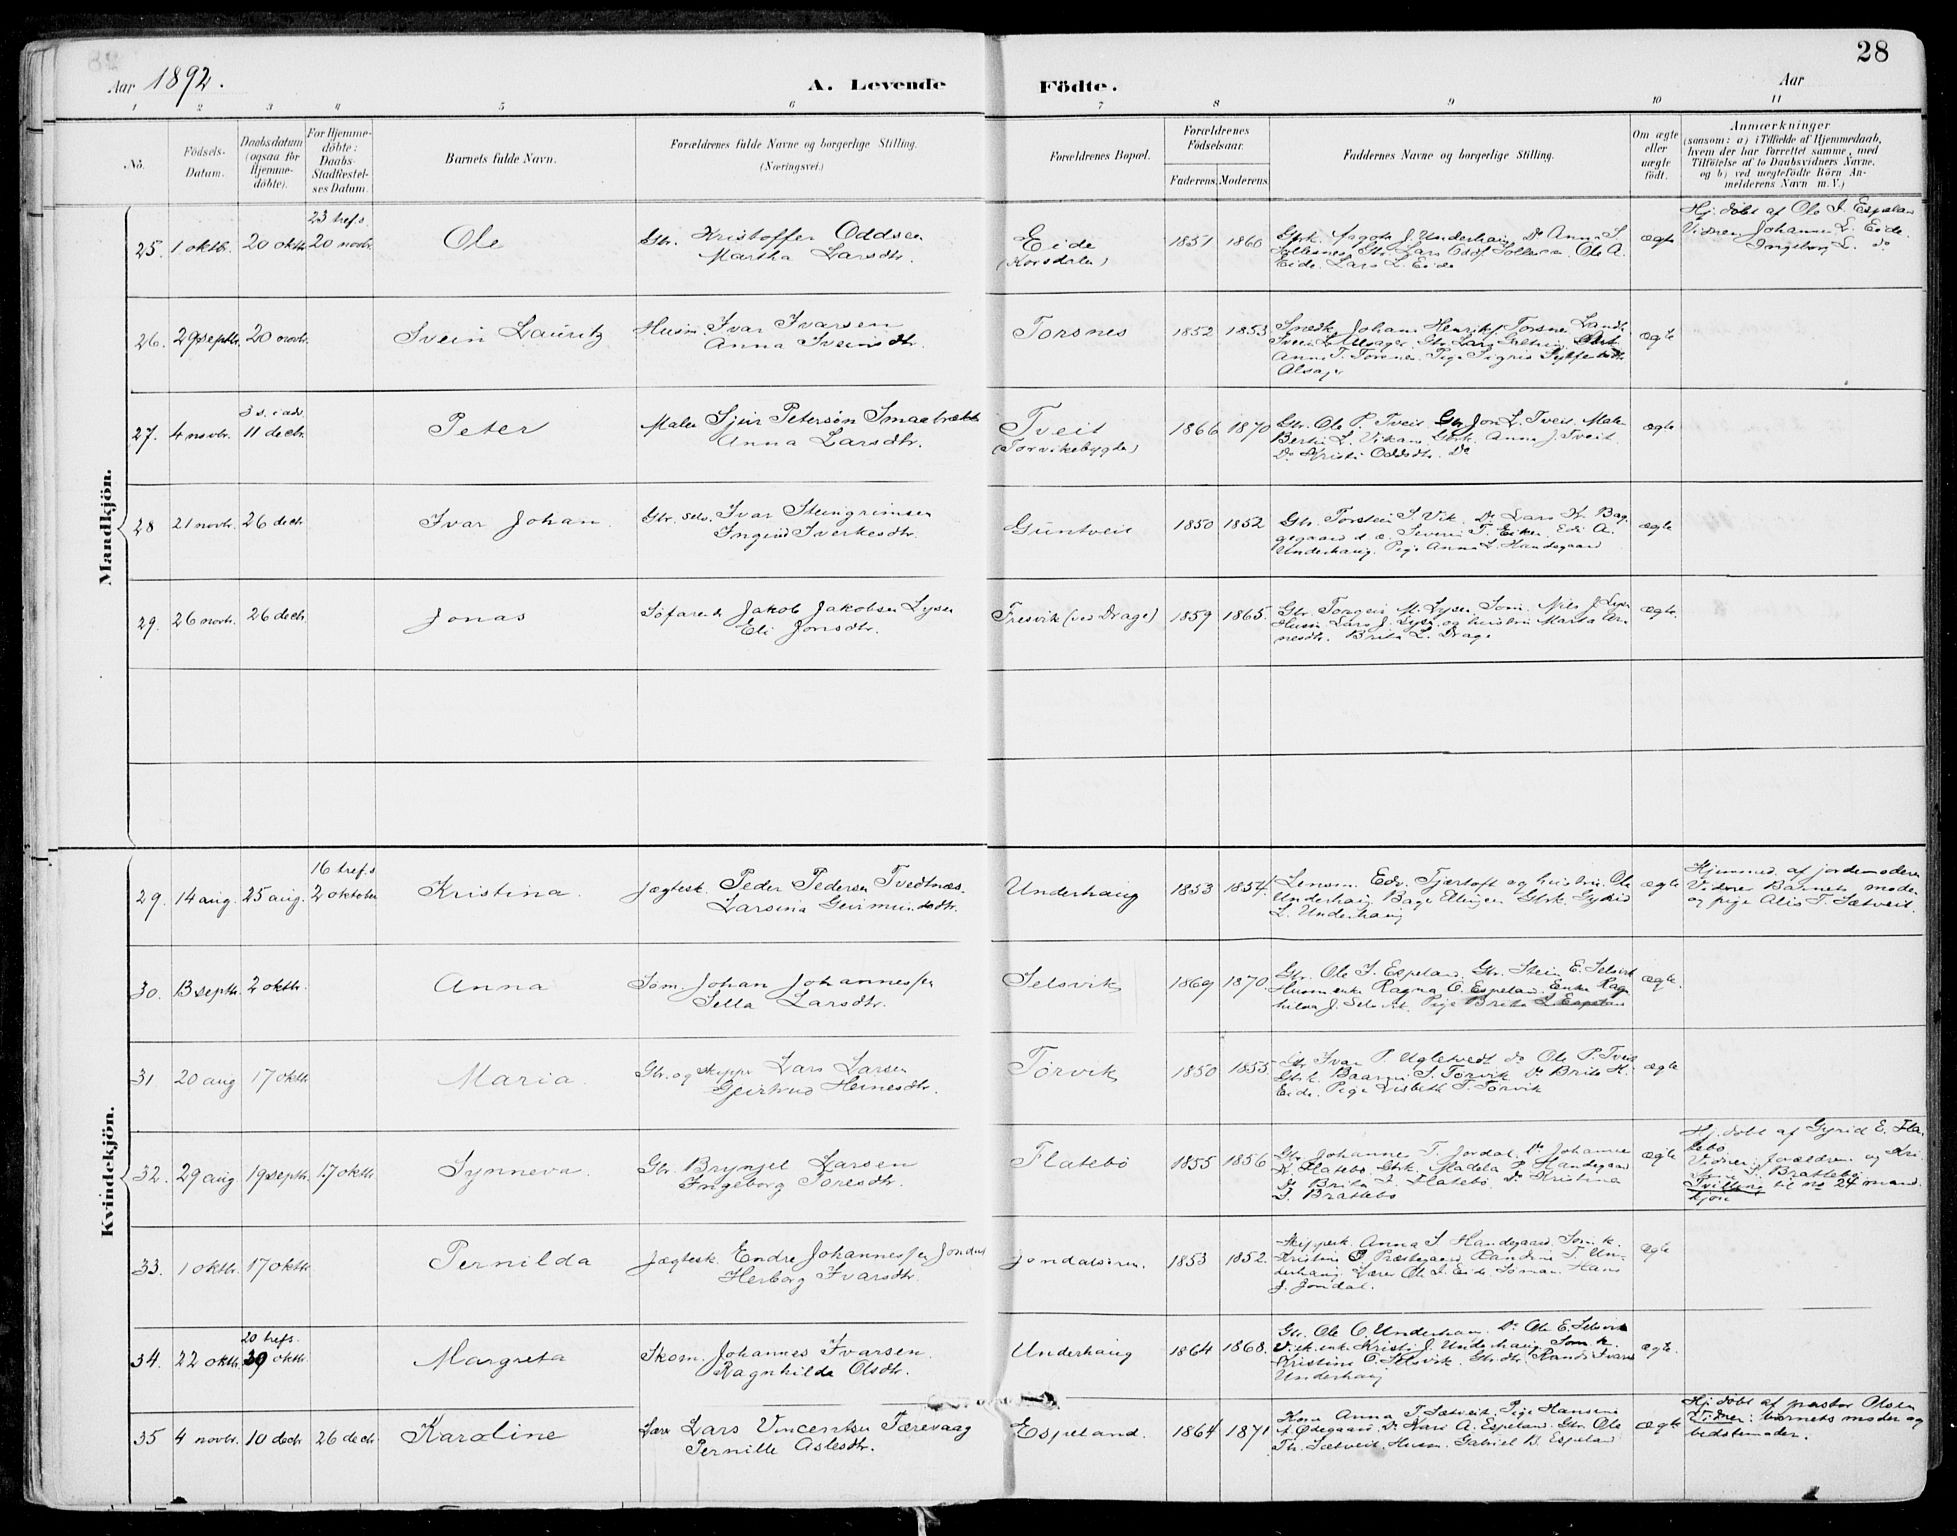 28
Aar 1892.
A. Levende Födte.
Aar
1 2 3 4 5 6 7 8 9 10 11
No.
Födsels-Datum.
Daabsdatum (ogsaa for Hjemme-døbte).
For Hjemme-døbte: Daabs-Stadfæstelses Datum.
Barnets fulde Navn.
Forældrenes fulde Navne og borgerlige Stilling. (Næringsvei.)
Forældrenes Bopæl.
Forældrenes Födselsaar.
Faderens. Moderens.
Faddernes Navne og borgerlige Stilling.
Om ægte eller uægte födt.
Anmærkninger
(saasom: a) i Tilfælde af Hjemmedaab,
hvem der har forrettet samme, med
Tilföielse af to Daabsvidners Navne,
og b) ved uægtefödte Börn An-
melderens Navn m. V.)
Mandkjön.
25. 1 oktbr. 20 oktbr. 23 tref.s. 20 novbr. Ole
Gbr. Kristoffer Oddsen
Martha Larsdtr.
Eide
(Korsdalen)
1851 1860
Gbrk. Aagote J. Underhaug Do Anna S.
Eide. Lars L. Eide
ægte
Hj. døbt af Ole I. Espeland
Vidner Johannes L. Eide.
Ingeborg L. do
26. 29 septbr. 20 novbr. Svein Lauritz
Husm. Ivar Ivarsen
Anna Sveinsdtr.
Torsnes
1852 1853
Snedk. Johan Henrik Torsnes
Alsager
ægte
27. 4 novbr. 3 s. i adv. 11 decbr. Peter
Maler Sjur Petersøn Smaabrække
Anna Larsdtr.
Tveit
(Torvikebygden)
1866 1870
Gbr. Ole P. Tveit Gbr Jon L. Tveit. Maler
Bertin L. Vikane Gbrk. Anna J. Tveit
Do Kristi Oddsdtr. Do
ægte
28 21 novbr. 26 decbr. Ivar Johan.
Gbr. selv. Ivar Steingrimsen
Ingerid Sverkesdtr.
Guntveit
1850 1852
Gbr. Torstein S. Vik. Do Lars
Underhaug. Pige Anna L. Handegaard
ægte
29. 26 novbr. 26 decbr. Jonas
Søfarende Jakob Jakobsen Lysen
Eli Jonsdtr.
Tresvik (ved Drage)
1859 1865.
Gbr. Torgeir M. Lysen Søm. Nils J. Lysen
Husm Lars J. Lysen og hustru Marta Ar-
nesdtr. Brita L. Drage
ægte.
Kvindekjön.
29. 14 aug. 25 aug. 16 tref.s. 2 oktober Kristina.
Jægtesk. Peder Pedersen Tvedtnæs.
Larsina Geirmundsdtr.
Underhaug
1853 1854.
Lensm. Edv. Tjærtoft og hustru. Ole
Underhaug. Gbrk. Gyrid
L. Underhaug
ægte
Hjemmed. af jordemoderen
Vidner Barnets moder
og pige Alis T. Sætveit.
30. 13 septbr. 2 oktbr. Anna
Søm. Johan Johannessen
Sella Larsdtr.
Selsvik
1869 1870.
Gbr. Ole I. Espeland. Gbr. Stein E. Selsvik
Husm enke Ragna O. Espeland. Enke Ragn-
hilda J. Selsvik. Pige Brita L. Espeland
ægte.
31 20 aug 17 oktbr Maria.
Gbr. og skipper Lars Larsen
Geirtrud Heinesdtr.
Törvik
1850 1855
Gbr Ivar P. Ugletvedt do Ole P. Tveit
Gbrk. Baarni S. Torvik. Do Brita H.
Eide. Pige Lisbeth T. Torvik
ægte
32. 29 aug. 19 septbr. 17 oktbr. Synneva.
Gbr. Brynjel Larsen
Ingeborg Toresdtr.
Flatebö
1855 1856
Gbr. Johannes T. Jordal. Do Johannes
Flatebø. Gbrk. Madela P. Handegaard
Do Brita I. Flatebø. Do Kristina
I. Brattebø
ægte
Hj. døbt af Gyrid E. Fla-
tebø.
Vidner: forældrene og Kri-
I. Brattebø
Tvilling til no 24 mand-
kjøn
33. 1 oktbr. 17 oktbr. Pernilda
Jægtesk. Endre Johannessen Jondal
Herborg Ivarsdtr.
Jondalsøren.
1853 1852.
Skipperk. Anna S. Handegaard. Søm k.
Kristine Præstegaard Randine T. Un-
derhaug. Lærer Ole I. Eide. Sømand Hans
J. Jondal.
ægte
34. 22 oktbr. 20 tref.s. 30 oktbr. Margreta
Skom. Johannes Ivarsen.
Ragnhilda Olsdtr.
Underhaug
1864 1868.
Gbr. Ole O. Underhaug. Do Ole E. Selsvik
Kristi J. Underhaug. Søm k.
Kristine O. Selsvik. Gbrdtr. Randi Ivars
Underhaug
ægte.
35 4 novbr. 10 decbr. 26 decbr. Karoline
Lærer Lars Vincentsen Tærevaag
Pernille Aslesdtr.
Espeland.
1864 1871
Kone Anna T. Sætveit. Pige Hansine
A. Ødegaard. Do Kari A. Espeland. Gbr. Ole
Th. Sætveit. Husm. Gabriel B. Espeland
ægte
Hj. døbt af pastor Olsen
Vidner: barnets moder og
bedstemoder.